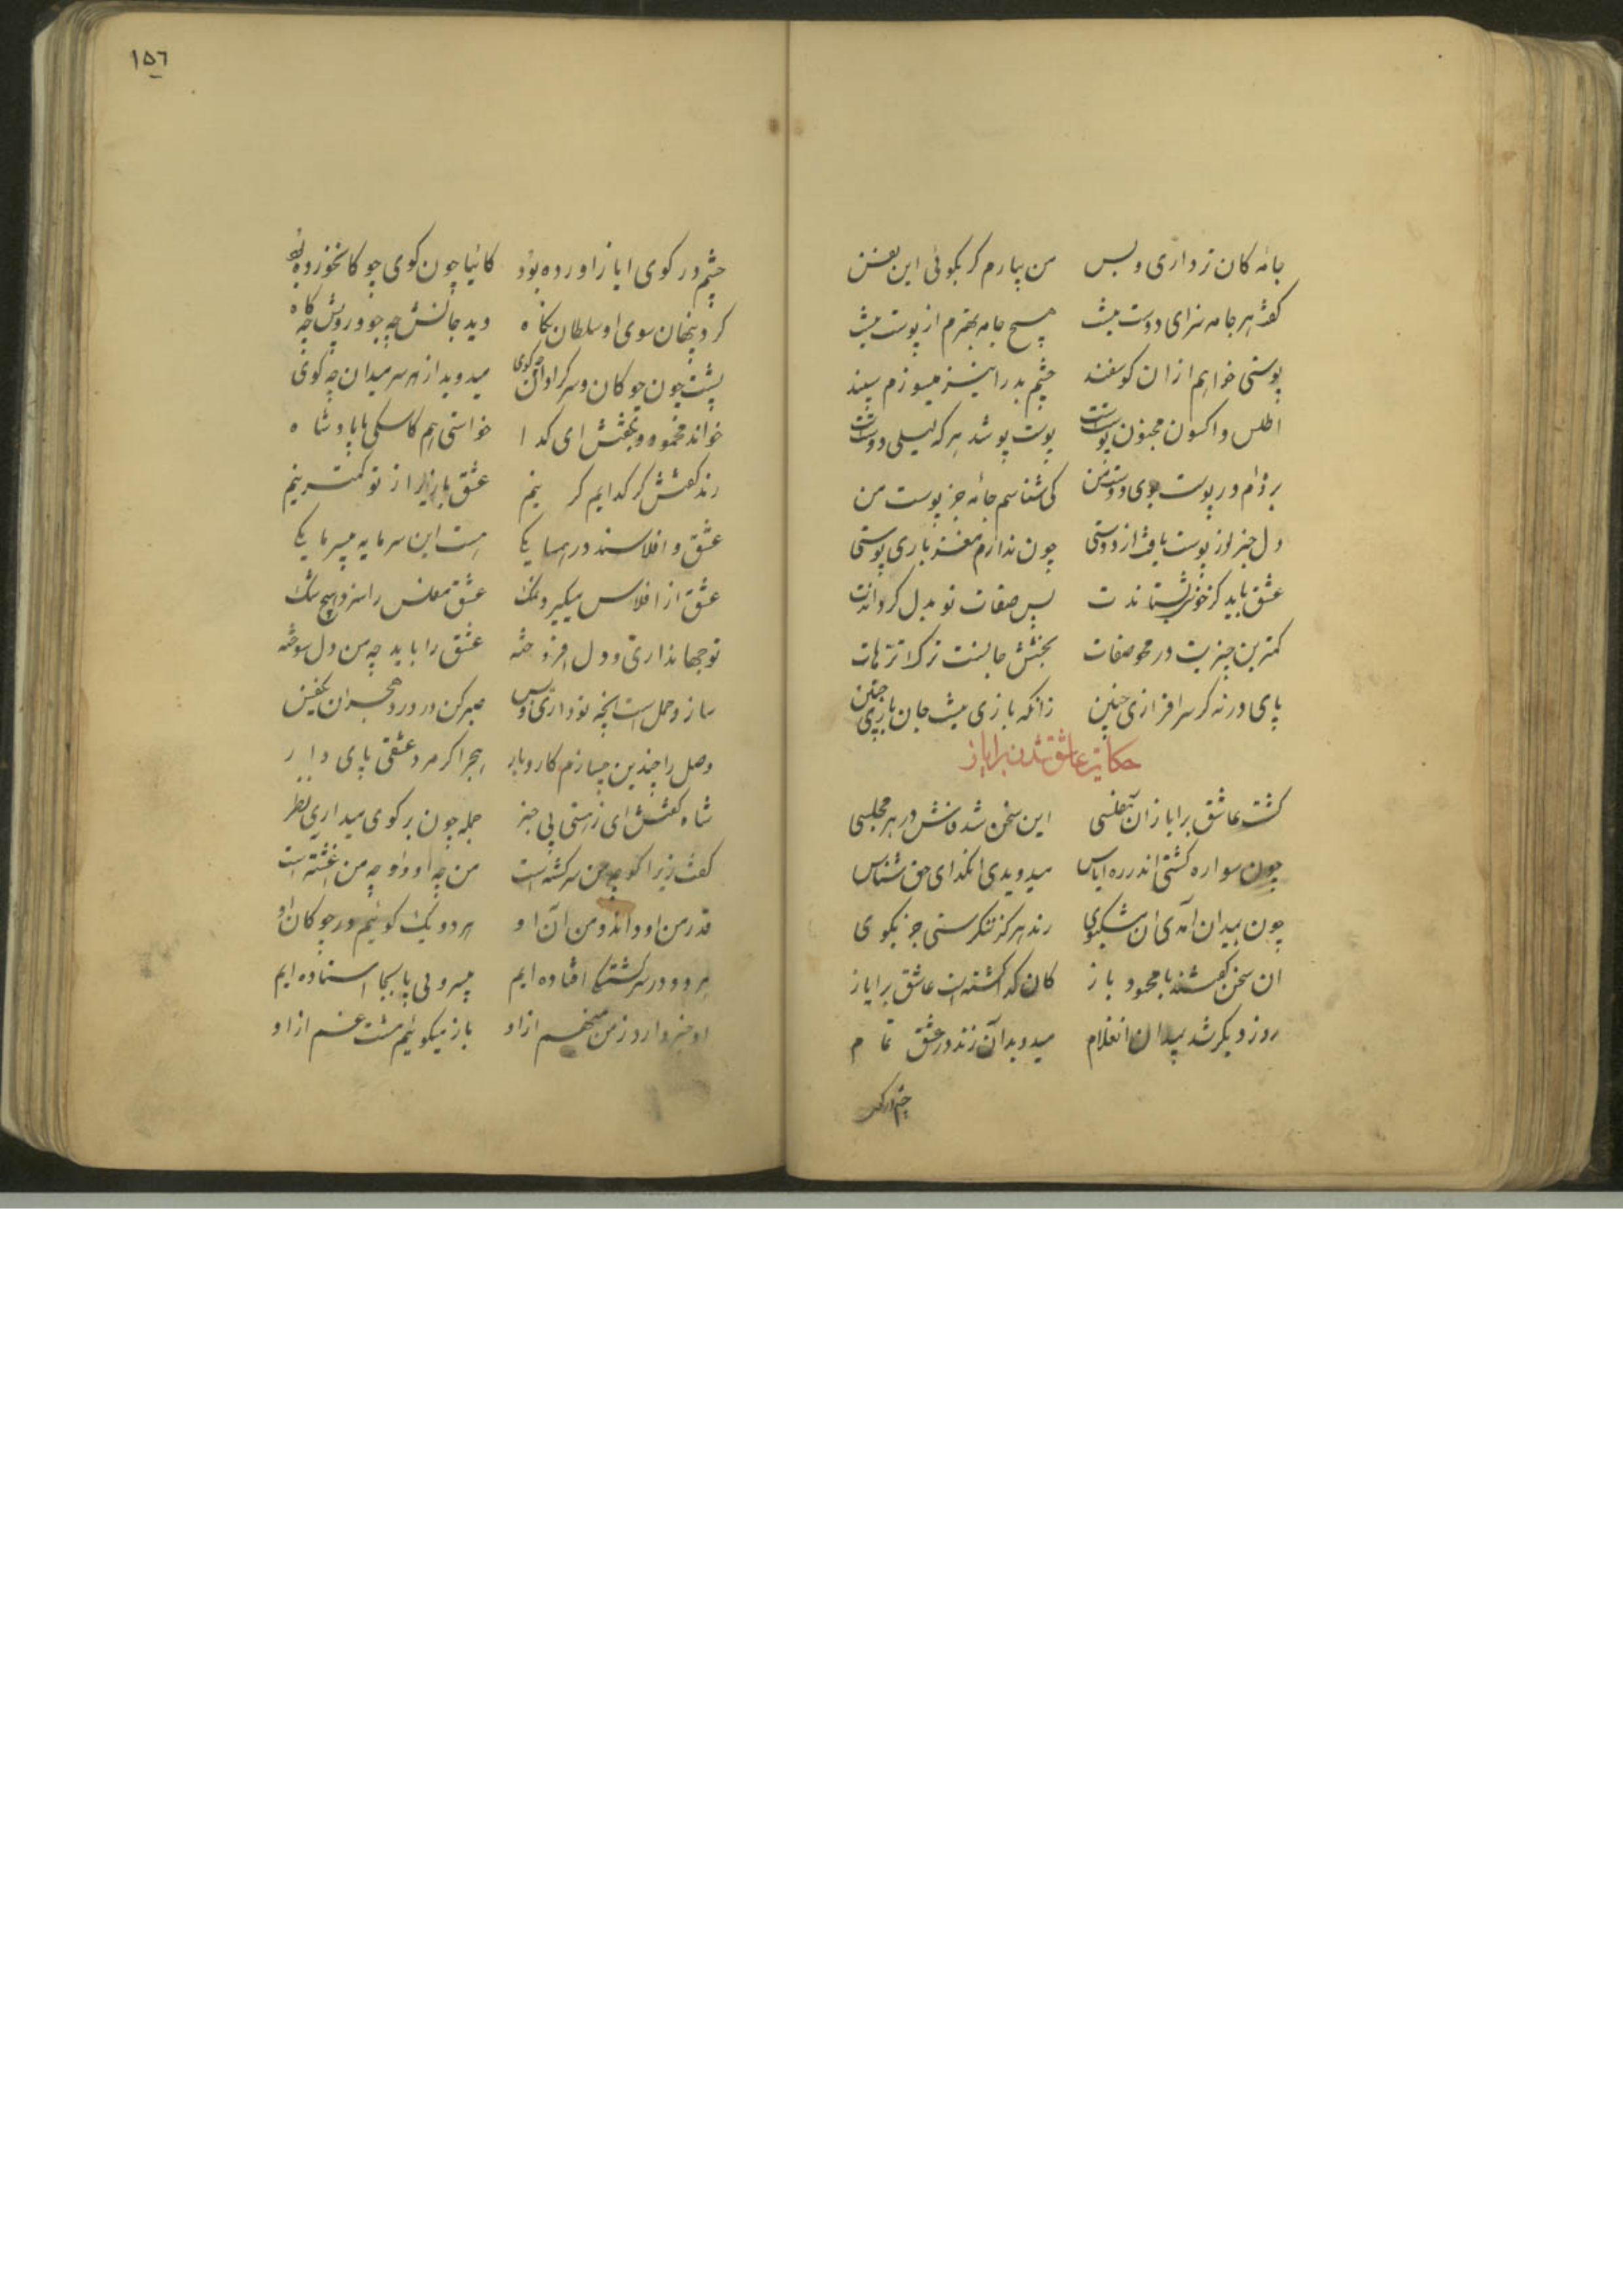 جامه کان زو داری و بس من بیارم گر بگوئی این نفس
گفت هر جامه سزای دوست نیست هیچ جامه بهترم از پوست نیست
پوستی خواهم از ان گوسفند چشم بد را نیز میسوزم سپند
اطلس و اکسون مجنون پوست پوست پوشد هر که لیلی دوست
برده‌ام در پوست بوی دوست من کی شناسم جامه جز پوست من
دل خبر از پوست یافت از دوستی چون ندارم مغز باری پوستی
عشق باید کز خودی بستاندت پس صفات تو بدل گرداندت
کمترین چیزیت در محو صفات بخشش جانست ترک ترهات
پای در نه گر سرافرازی چنین زانکه بازی نیست جان بازی چنین
حکایت عاشق شدن بر ایاز
گشت عاشق بر ایاز آن مفلسی این سخن شد فاش در هر مجلسی
چون سواره گشتی اندر ره ایاس میدویدی انگدای حق شناس
چون بمیدان آمدی ان مشکبوی رند هرگز ننگرستی جز بگوی
ان سخن گفتند با محمود باز کان گدا گشته است عاشق بر ایاز
روز دیگر شد بمیدان انغلام میدوید آن رند در عشق تمام
چشم در گوی
١٥٦
چشم در گوی ایاز اورده بود گائیا چون گوی چوگانخورده بود
کرد پنهان سوی او سلطان نگاه دید جانش چه جو و رویش چه کاه
پشت چون چوگان و سرگردان چو گوی میدوید از هر سر میدان چه گوی
خواند محمود و بگفتش ای گدا خواستی هم کاسگی با پادشاه
رند گفتش گر گدایم گر نیم عشق بازی را ز تو کمتر نیم
عشق و افلاسند در همسایگی هست این سرمایه بی سرمایگی
عشق از افلاس میگیرد نمک عشق مفلس را سزد بی هیچ شک
تو جهانداری و دل افروخته عشق را باید چه من دل سوخته
ساز وصل است انچه تو داری و بس صبر کن در درد هجران یکنفس
وصل را چندین چه سازم کار و بار هجر را گر مرد عشقی پای دار
شاه گفتش ای ز هستی بی خبر جمله چون بر گوی میداری نظر
گفت زیرا گو چه من سرگشته است من چه او و او چه من اغشته است
قدر من او داند و من آن او هر دو یک گوئیم در چوگان او
هر دو در سرگشتگی افتاده ایم بی سر و بی پا بجا استاده ایم
او خبر دارد ز من من هم از او باز میگوئیم مشت غم از او